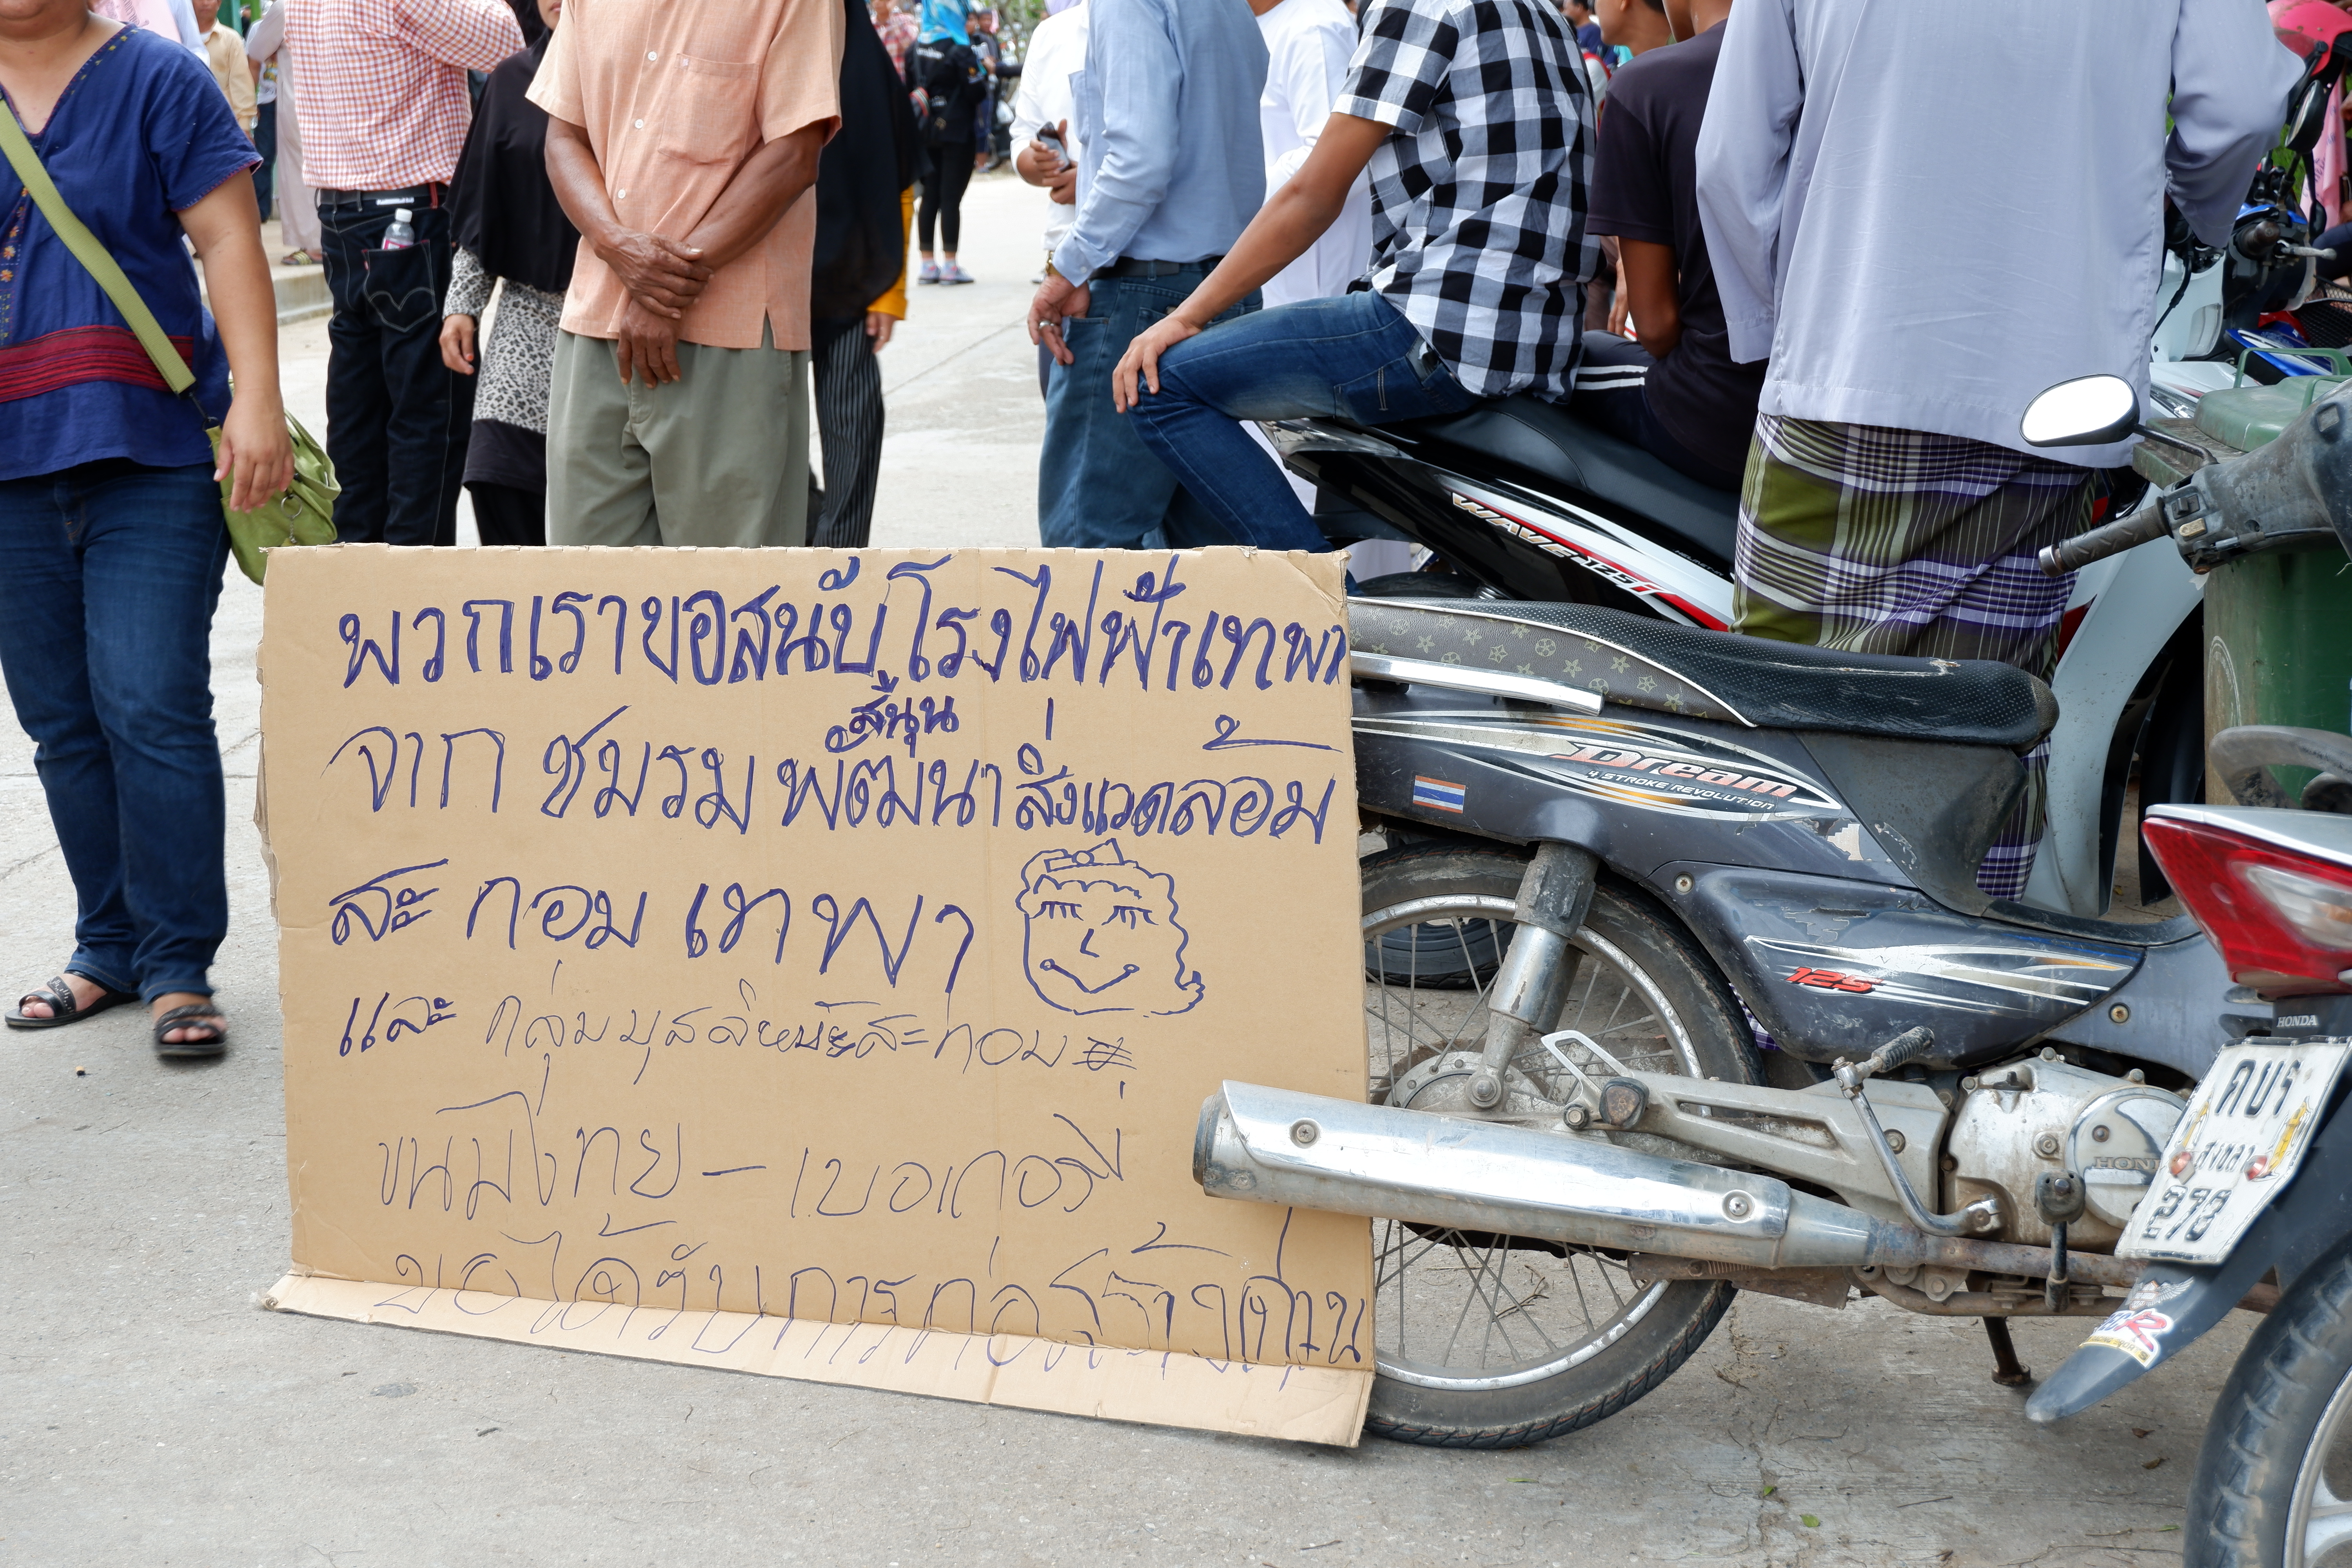 พวกเราขอสนับ โรงไฟฟ้าเทพา
สนุน
จาก ชมรม พัฒนาสิ่งแวดล้อม
สะ กอม เทพา
และ กลุ่มมุสลิมะสะกอม
ขนมไทย - เบอเกอรี่
ขอได้รับการก่อสร้างด่วน
WAVE 125i
Dream
4 STROKE REVOLUTION
125
HONDA
HONDA
คบร
สงขลา
278